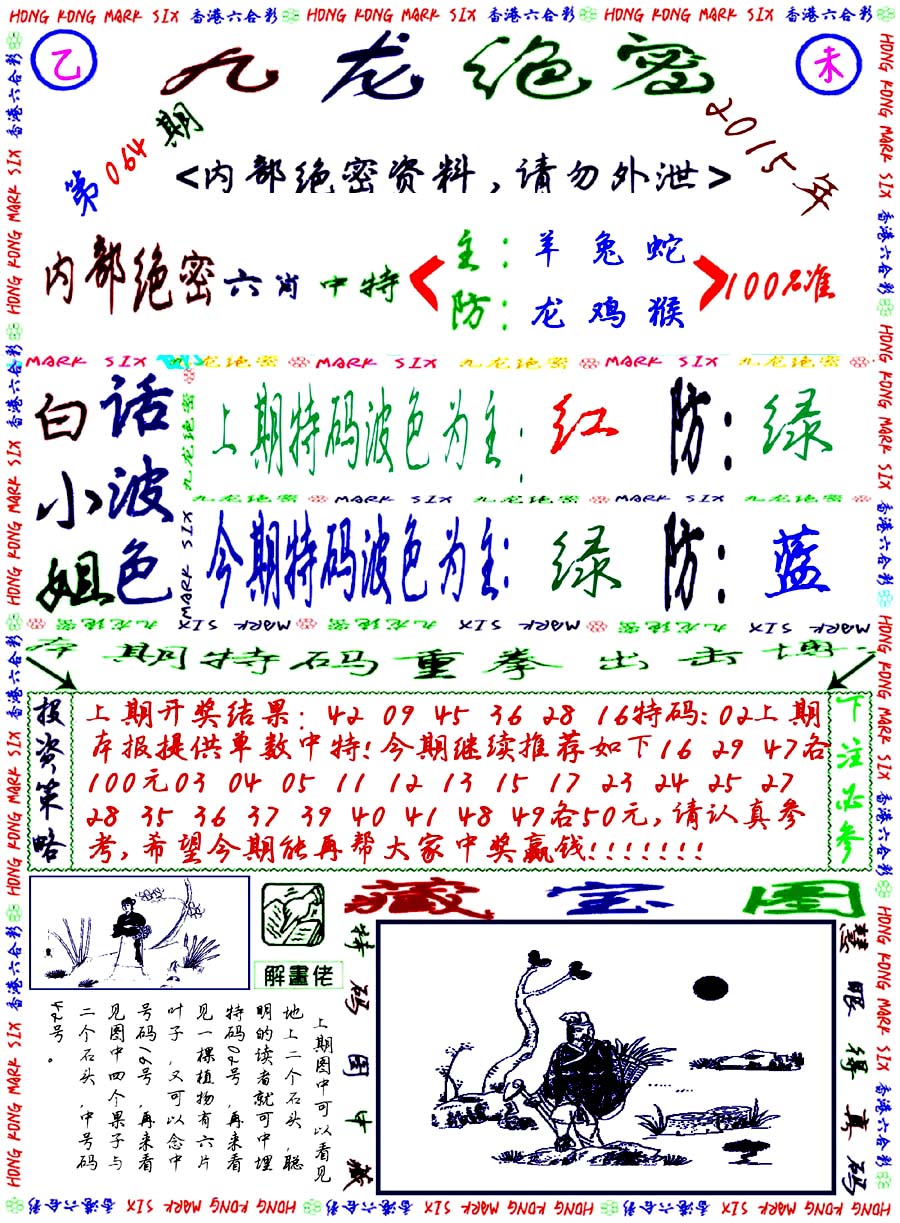 HONG KONG MARK SIX 香港六合彩 HONG KONG MARK SIX 香港六合彩 HONG KONG MARK SIX 香港六合彩
乙
九龙绝密
未
第064期
2015年
<内部绝密资料,请勿外泄>
内部绝密六肖中特
主:羊兔蛇
防:龙鸡猴
100%准
MARK SIX 九龙绝密 MARK SIX 九龙绝密 MARK SIX 九龙绝密
白小姐
话波色
上期特码波色为主:红 防:绿
九龙绝密 MARK SIX 九龙绝密 MARK SIX 九龙绝密
今期特码波色为主:绿 防:蓝
本期特码重拳出击博
投资策略
上期开奖结果:42 09 45 36 28 16特码:02上期
本报提供单数中特!今期继续推荐如下16 29 47各
100元03 04 05 11 12 13 15 17 23 24 25 27
28 35 36 37 39 40 41 48 49各50元,请认真参
考,希望今期能再帮大家中奖赢钱!!!!!!!
下注必参
藏宝图
解畫佬
特码图中藏
慧眼得真码
上期图中可以看见
地上二个石头,聪
明的读者就可中埋
特码02号,再来看
见一棵植物有六片
叶子,又可以念中
号码16号,再来看
见图中四个果子与
二个石头,中号码
42号。